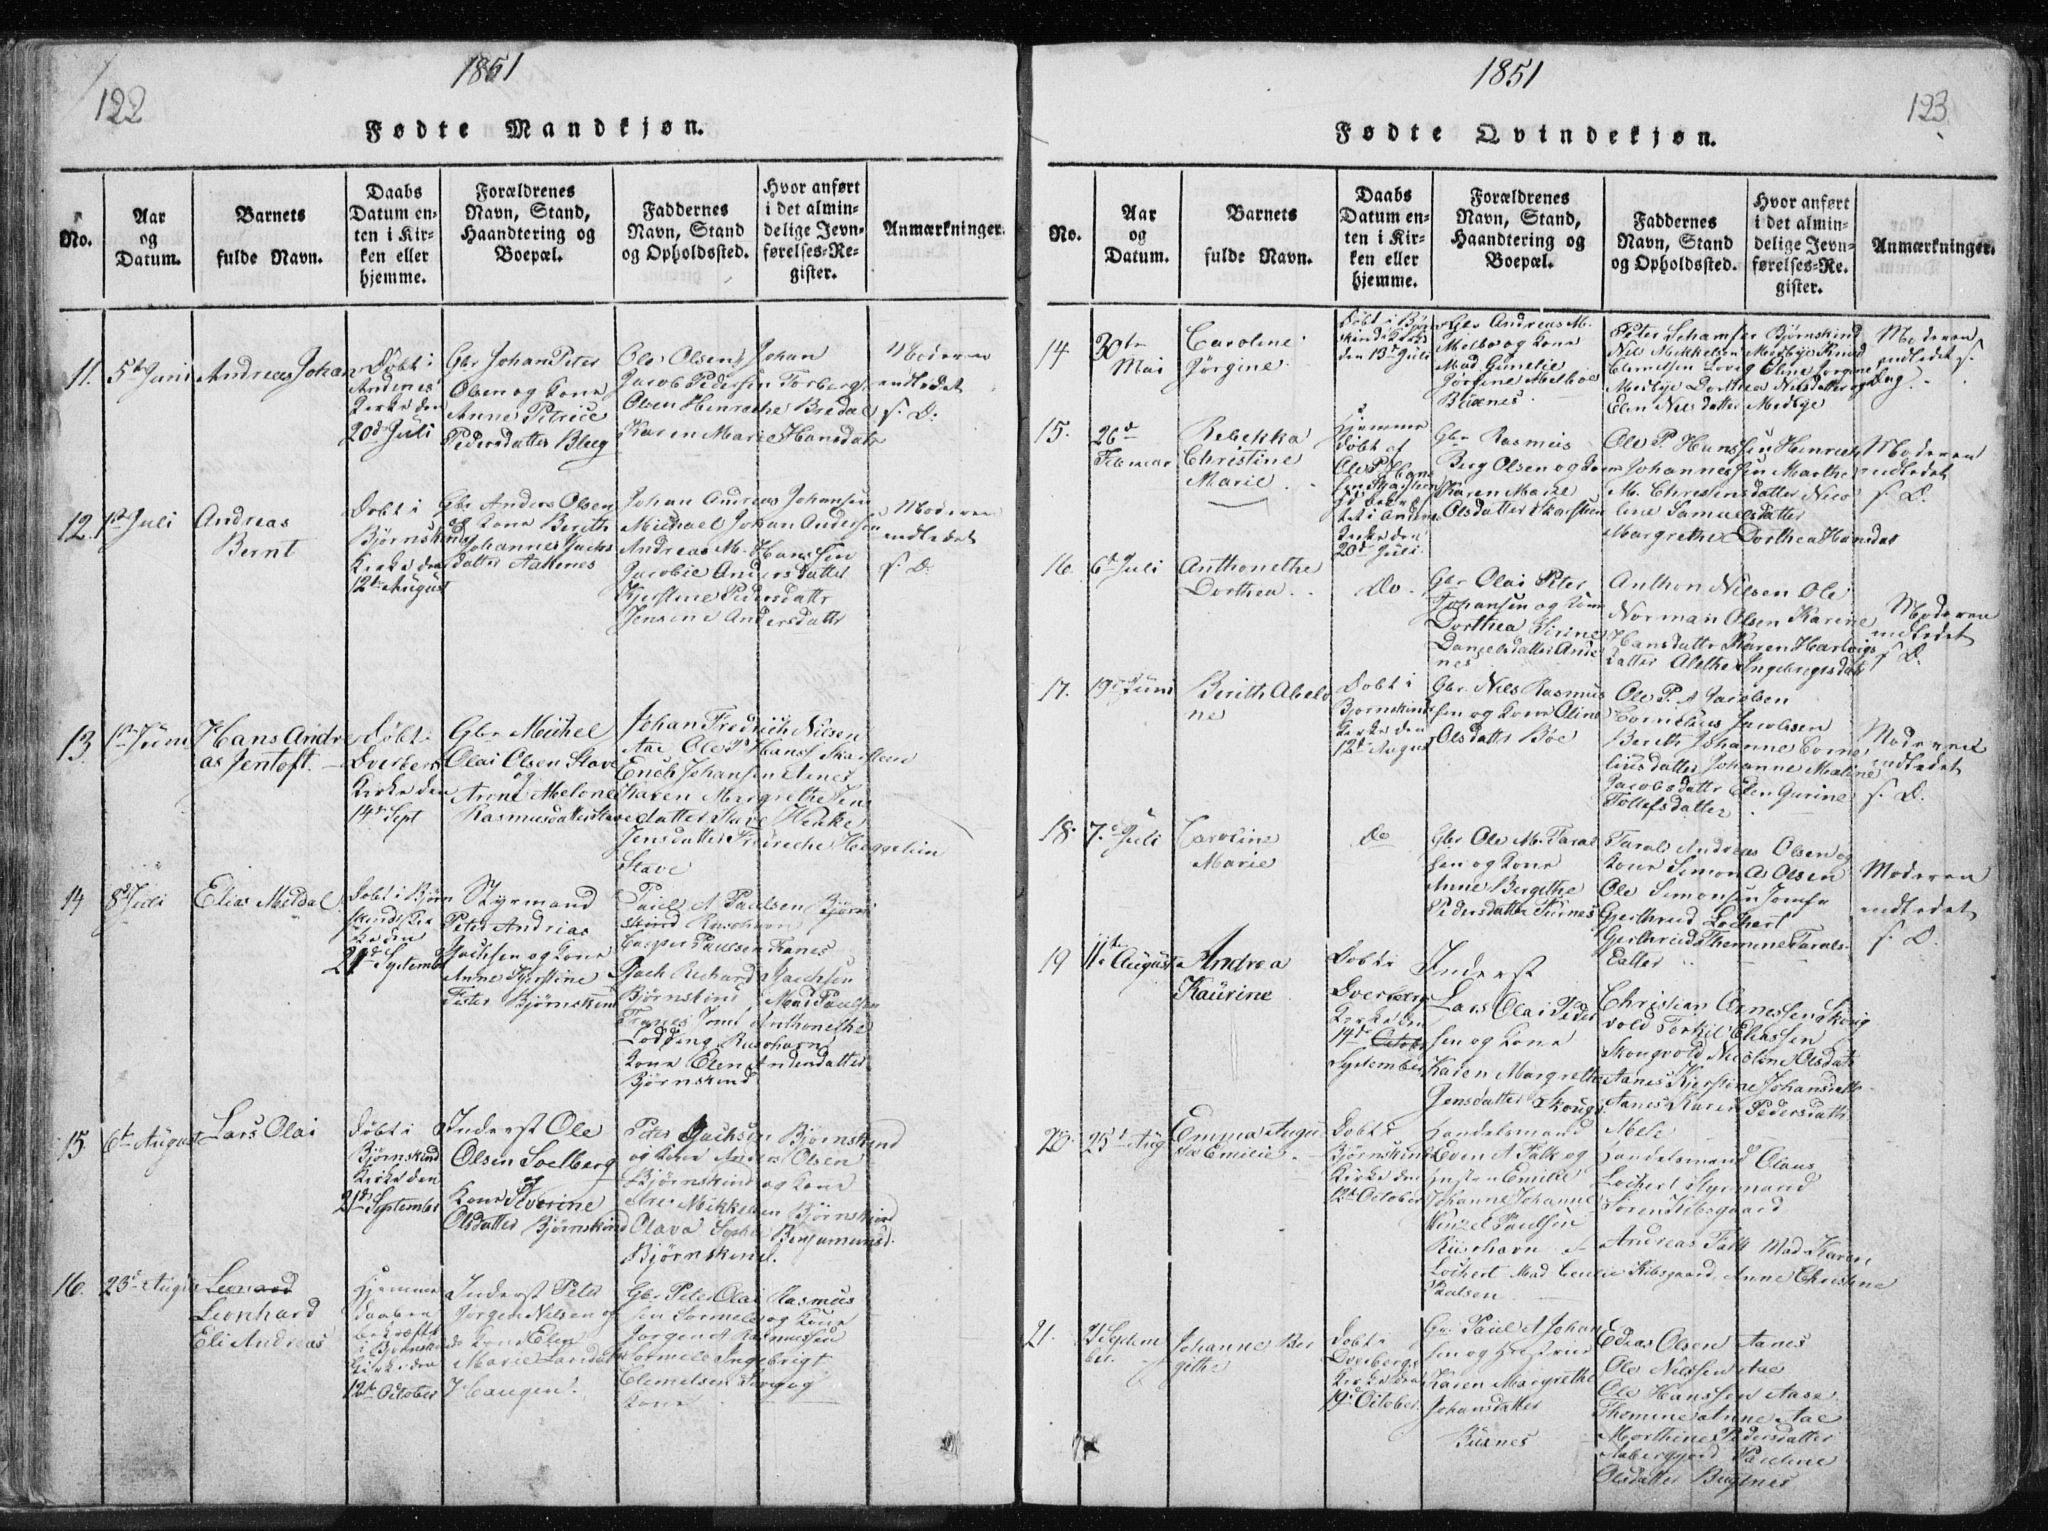 122
1851
Fødte Mandkjøn.
No.
Aar
og
Datum.
Barnets
fulde Navn.
Daabs
Datum en-
ten i Kir-
ken eller
hjemme.
Forældrenes
Navn, Stand,
Haandtering og
Boepæl.
Faddernes
Navn, Stand
og Opholdssted.
Hvor anført
i det almin-
delige Jevn-
førelses-Re-
gister.
Anmærkninger.
11.
5te Juni
Andreas Johan
Døbt i
Andenes
Kirke den
20de Juli
Gbr Johan Peter
Olsen og Kone
Anne Petrice
Pedersdatter Bleeg
Ole Olsen Johan
Jacob Pedersen Torberg
Olsen Henrethe Bredal
Karen Marie Hansdatr
Moderen
indledet
s. D.
12.
1ste Juli
Andreas
Bernt
Døbt i
Bjørnskind
Kirke den
12te August
Gbr Anders Olsen
og Kone Berith
Johannes Jachs
datter Aakenes
Johan Andreas Johansen
Michael Johan Andersen
Andreas M. Hanssen
Jacobie Andersdatter
Kjerstine Pedersdattr
Jensine Andersdattr
Moderen
indledet
s. D.
13.
1ste Juni
Hans Andre
as Jentoft.
Døbt i
Dverbergs
Kirke den
14de Sept
Gbr Michel
Olai Olsen Stave
og
Anne Melone
Rasmusdatter Stave
Johan Fredrich Nilsen
Aae Ole P Hanss Skarsteen
Erich Johansen Aanes
Karen Margrethe Jens
datter Stave
Jensdatter
Stave
14
8de Juli
Elias Meldal
Døbt i Bjørn
skinds Kir
ke den
21de Septemb
Styrmand
Peter Andreas
Jachsen og Kone
Anne Kjerstine
Fester Bjørnskind
Paul A Paulsen Bjørn
skind
Casper Paulsen Franes
Jach Richard Jachsen
Bjørnskind Mad Paulsen
Franes Jomf Anthonethe
Lodding Risøhavn
Kone Elen Andersdatter
Bjørnskind
15.
6te August
Lars Olai
Døbt i
Bjørnskind
Kirke den
21de September
Inderst Ole
Olsen Solberg
og
Kone Severine
Olsdatter Bjørnskind
Peter Jachsen Bjørnskind
og Kone Anders Olsen
Bjørnskind og Kone
Mikkelsen Bjørnskind
Olava Sophie Benjaminsd.
Bjørnskind.
16.
23de August
Leonard
Leonhard
Eli Andreas
Hjemme
daaben
bekræftet
i Bjørnskind
Kirke den
12te October
Inderst Peter
Jørgen Nilsen og
Kone Elen
Marie Larsdat
Haugen.
Gbr Peter Olai Rasmus
sen Sormele og Kone
Jørgen A Rasmussen
Sormele Ingebrigt
Clemetsen og
Kone

1851
123
Fødte Qvindekjøn.
No.
Aar
og
Datum.
Barnets
fulde Navn.
Daabs
Datum en-
ten i Kir-
ken eller
hjemme.
Forældrenes
Navn, Stand,
Haandtering og
Boepæl.
Faddernes
Navn, Stand
og Opholdssted.
Hvor anført
i det almin-
delige Jevn-
førelses-Re-
gister.
Anmærkninger.
14
30te
Mai
Caroline
Jørgine
Døbt i Bjørn
skind Kirke
den 13de Juli
Gbr Andreas M.
Melbo og Kone
Mad. Gunelie
Jørgine Melboe
Buxnes.
Peter Schanfer Bjørnskind
Nils Mikkelsen Medbye Knud
Clemetsen Eline Jørgine
Medbye Dorthea Nilsdatter og
Elen Nilsdatter Medbye
Moderen
indledet s.
Dag.
15.
26de
Februar
Rebekka
Christine
Marie
Hjemme
døbt af
Ole P. Hans
sen Skarsteen
Kirke den
20de Juli
Gbr Rasmus
Berg Olsen og Kone
Karen Marie
Olsdatter Skarsteen
Ole P. Hanssen Henrich
Johannessen Marthe
M. Christensdatter Nico
line Samuelsdatter
Margrethe Dorthea Hansdat
Moderen
indledet
s. D.
16.
6te Juli
Anthonethe
Dorthea
do.
Gbr Olai Peter
Johansen og Kone
Dorthea Sirine
Danjelsdatter Ande
nes
Anthon Nilsen Ole
Norman Olsen Karine
Hansdattr Karen Hartvigs
datter Alethe Ingebrigtsdatr
Moderen
indledet
s. D.
17.
19de Juni
Berith Abelo
ne
Døbt i
Bjørnskind
Kirke den
12te August
Gbr Nils Rasmus
sen og Kone Oline
Olsdatter Bøe
Ole P. A Jacobsen
Cornelius Jacobsen
Berith Johanne Corne
liusdatter Johanne Martine
Jacobsdattr Elen Gurine
Tollefsdatter
Moderen
indledet
s. D.
18.
7de Juli
Caroline
Marie
do
Gbr Ole M. Taral
sen og Kone
Anne Bergithe
Pedersdatter
Tarals Andreas Olsen og
Kone Simon A Olsen
Ole Simonsen Jomfr
Gjerthrud Lochert
Gjerthrud Themine Tarals-
datter
Moderen
indledet
s. D.
19
11te August
Andrea
Kaurine
Døbt i
Dverbergs
Kirke den
14de October
September
Inderst
Lars Olai Peder
sen og Kone
Karen Margrethe
Jensdatter Skougv.
Christian Arnessen Skoug
vold Torkil Eliassen
Skougvold Nicoline Olsdatr
Aanes Kjerstine Johansdatr
Aanes Karen Pedersdatr
Mele
20.
25de Aug
Emma Augu
sta Emilie.
Døbt i
Bjørnskind
Kirke den
12te October
Handelsmand
Even A Falk og
Hustru Emilie
Johanne Johanne
Paulsen
Risøhavn
Handelsmand Claus
Lochert Styrmand
Søren Kibsgaard
Andreas Falk Mad Karen
Lochert Mad Cecilie Kibsgaard Anne Christine
Paulsen
21.
Septem
ber.
Johanne Ber
githe
Døbt i
Dverbergs
Kirke den
19de October
Paul A Johan
sen og Hustrue
Karen Margrethe
Johansdatter
Buxnes
Edias Olsen Aanes
Ole Nilssen Aae
Ole Hanssen Aase
Themine Anne Aae
Morthine Pedersdatter
Pauline
Olsdatter Buxnes